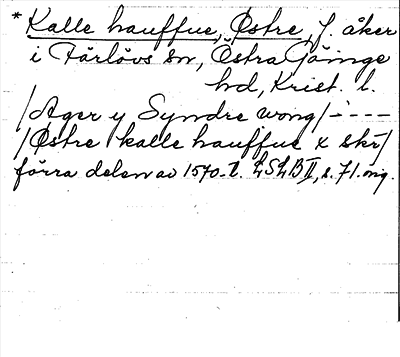 * Kalle hauffue, Østre, f. åker
i Färlövs sn, Östra Göinge
hd, Krist. l.
/Ager y Syndre wong/ - - - -
/Østre kalle hauffue x skr/
förra delen av 1570-t. LSLB II, s. 71. mg.